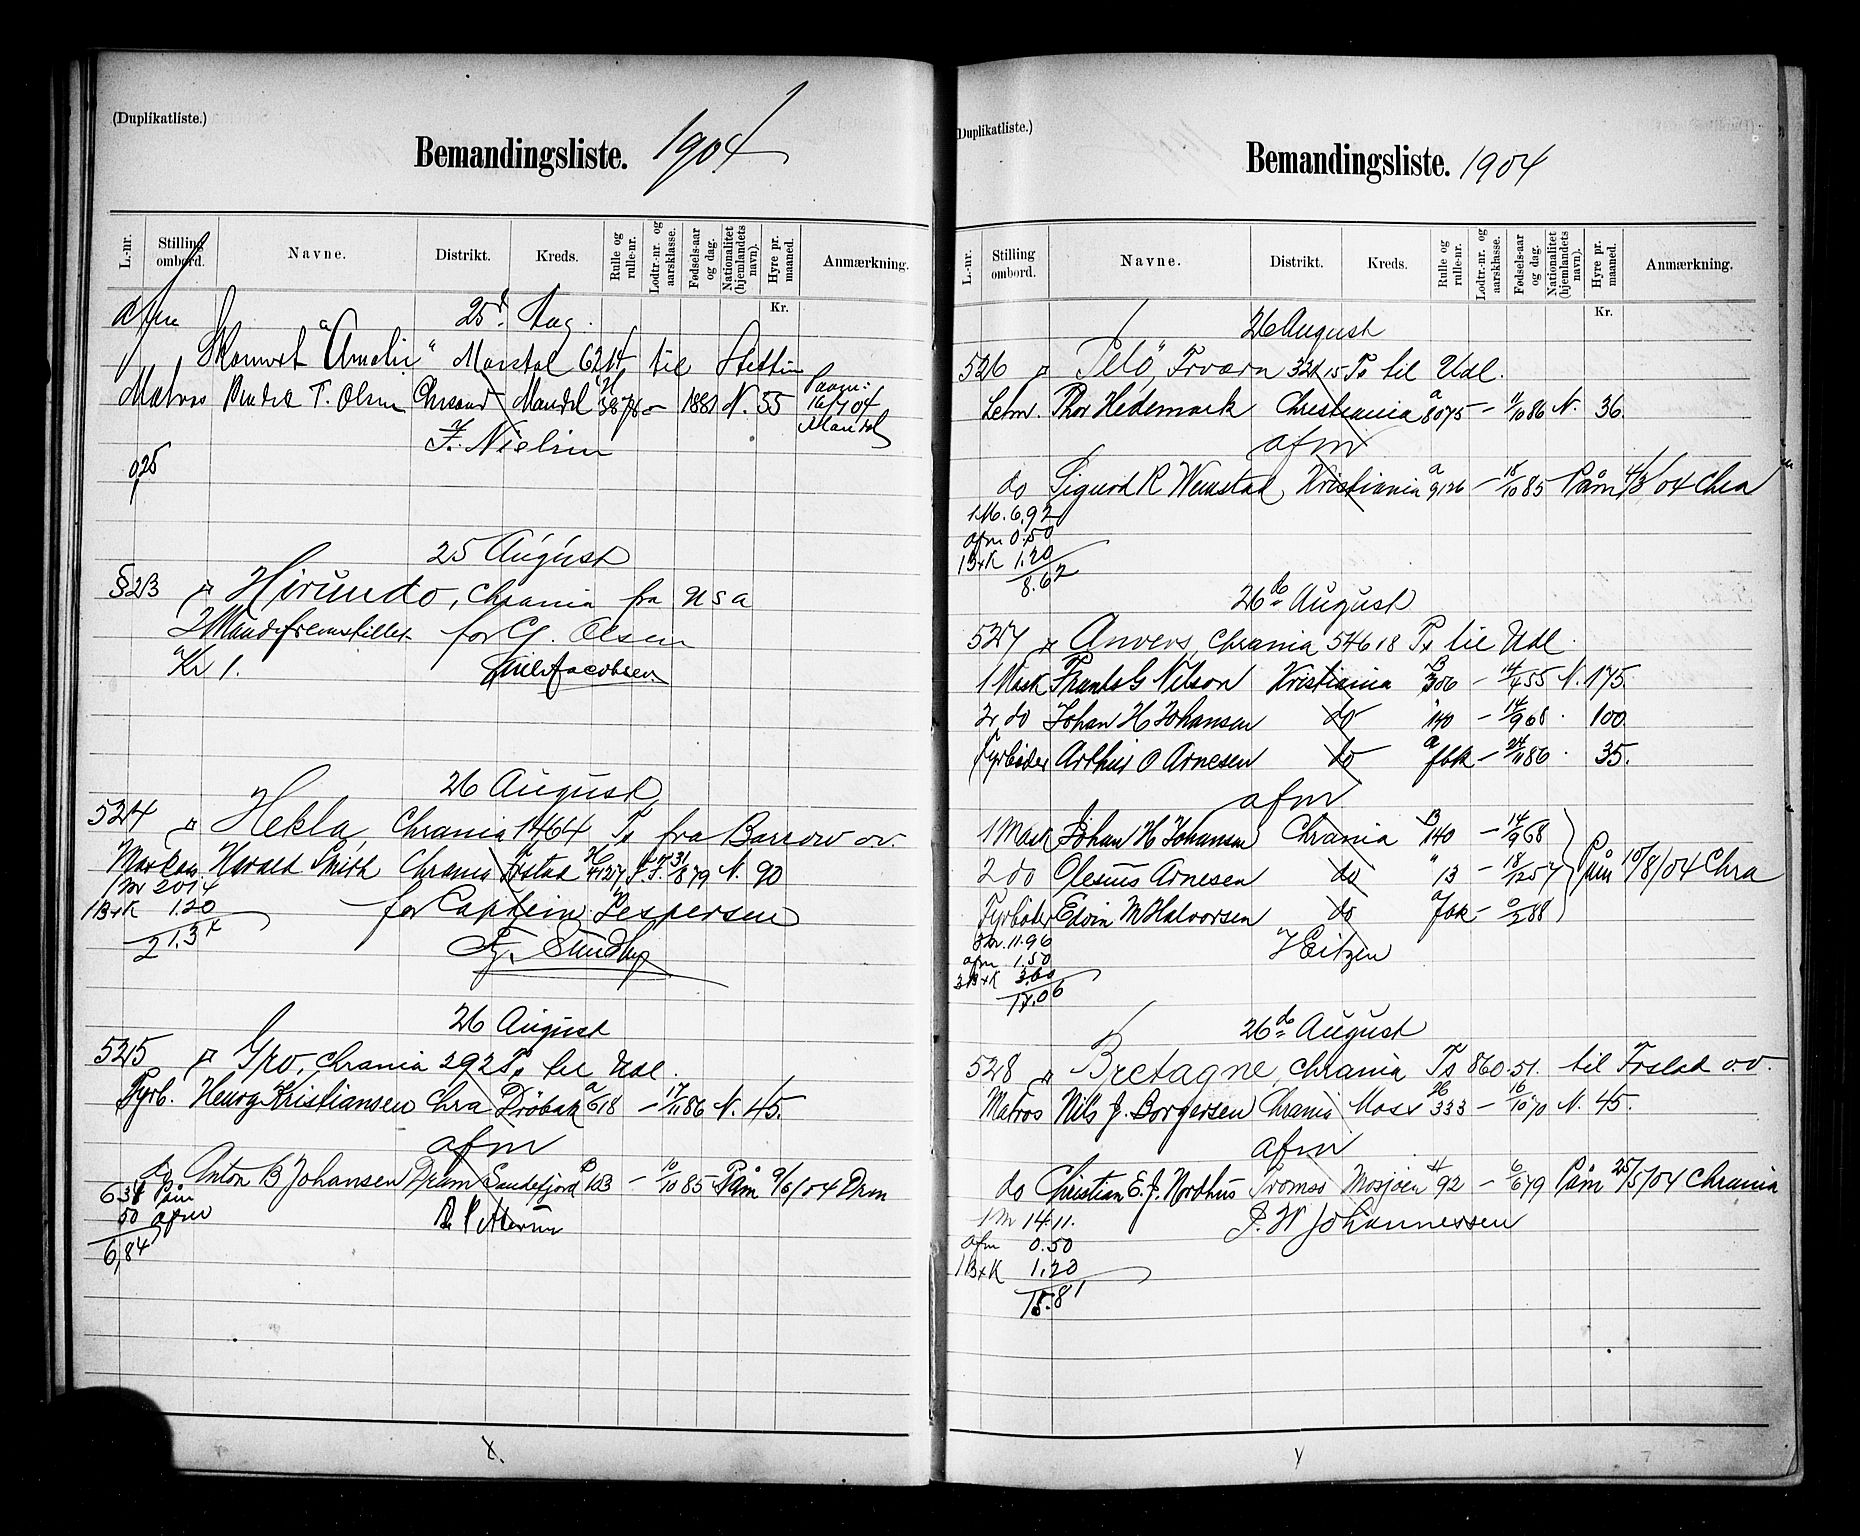 (Duplikatliste.)
Bemandingsliste. 1904
L.-nr. Stilling ombord. Navne. Distrikt. Kreds. Rulle og rulle-nr. Lodtr.-nr. og aarsklasse. Fødsels-aar og dag. Nationalitet (hjemlandets navn). Hyre pr. maaned. Anmærkning.
Kr.
afm 25d Aug.
"Amalie" Marstal til Stettin
Matros T. Olsen Mandal 3878 – 1881 N. 55 16/7 04 Mandal
F. Nielsen
0,25
25 August
§23 Hirundo, Chrania fra U S A
2 Mand fremstillet for G. Olsen
Kr 1. Jacobsen
26 August
524 Hekla, Chrania 1464 Ts fra Barrow ov.
Harald Smith Chrania 4127 31/8 79 N. 90
1 M 20.14
1 B+K 1.20
21.34
for Captein Jespersen
Sundby
26 August
525 Gro, Chrania 292 Ts til Udl.
Fyrb. Henry Kristiansen Chra Dröbak a 618 – 17/11 86 N. 45.
afm
do Anton B Johansen Dram Sandefjord 103 – 10/10 85 Påm 9/6/04 Drm
6.34 Påm
50 afm
6,84
X.
(Duplikatliste.)
Bemandingsliste. 1904
L.-nr. Stilling ombord. Navne. Distrikt. Kreds. Rulle og rulle-nr. Lodtr.-nr. og aarsklasse. Fødsels-aar og dag. Nationalitet (hjemlandets navn). Hyre pr. maaned. Anmærkning.
Kr.
26 August
526 Ts til Udl.
Letm. Thor Hedemark Christiania a 8075 – 9/10 86 N. 36.
afm
do Sigurd R Wemstad Kristiania a 9126 – 18/10 85 Påm 4/3/04 Chra
1 M. 6.92
afm 0.50
1 B+K 1.20
8.62
26de August
527 Anvers, Chrania 546 18 Ts til Udl.
1 Mask Frants G Nilson Kristiania B 306 – 14/4 55 N. 175.
2r do Johan H Johansen do " 140 – 14/9 68 . 100
Fyrböder Arthur O Arnesen do a fbk – 24/11 86 . 35.
afm
1 Mask Johan H Johansen Chrania B 140 – 14/9 68
2 do Olesius Arnesen do " 13 – 18/12 57 Påm 10/8/04 Chra
Fyrböder Edvin M Halvorsen do a fbk – 9/2 88
3 M. 11.96
afm 1.50
3 B+K 3.60
17.06
H Eitzen
26de August
528 Bretagne, Chrania Ts 860.51. til Frstad o.v.
Matros Nils J. Borgersen Chrania Moss 333 – 16/10 70 N. 45.
afm
do Christian E. J. Nordhus Tromsö Mosjöen 92 – 6/6 79 Påm 25/5/04 Chrania
1 M 14.11.
afm 0.50
1 B+K 1.20
15.81
J. W Johannessen
Y